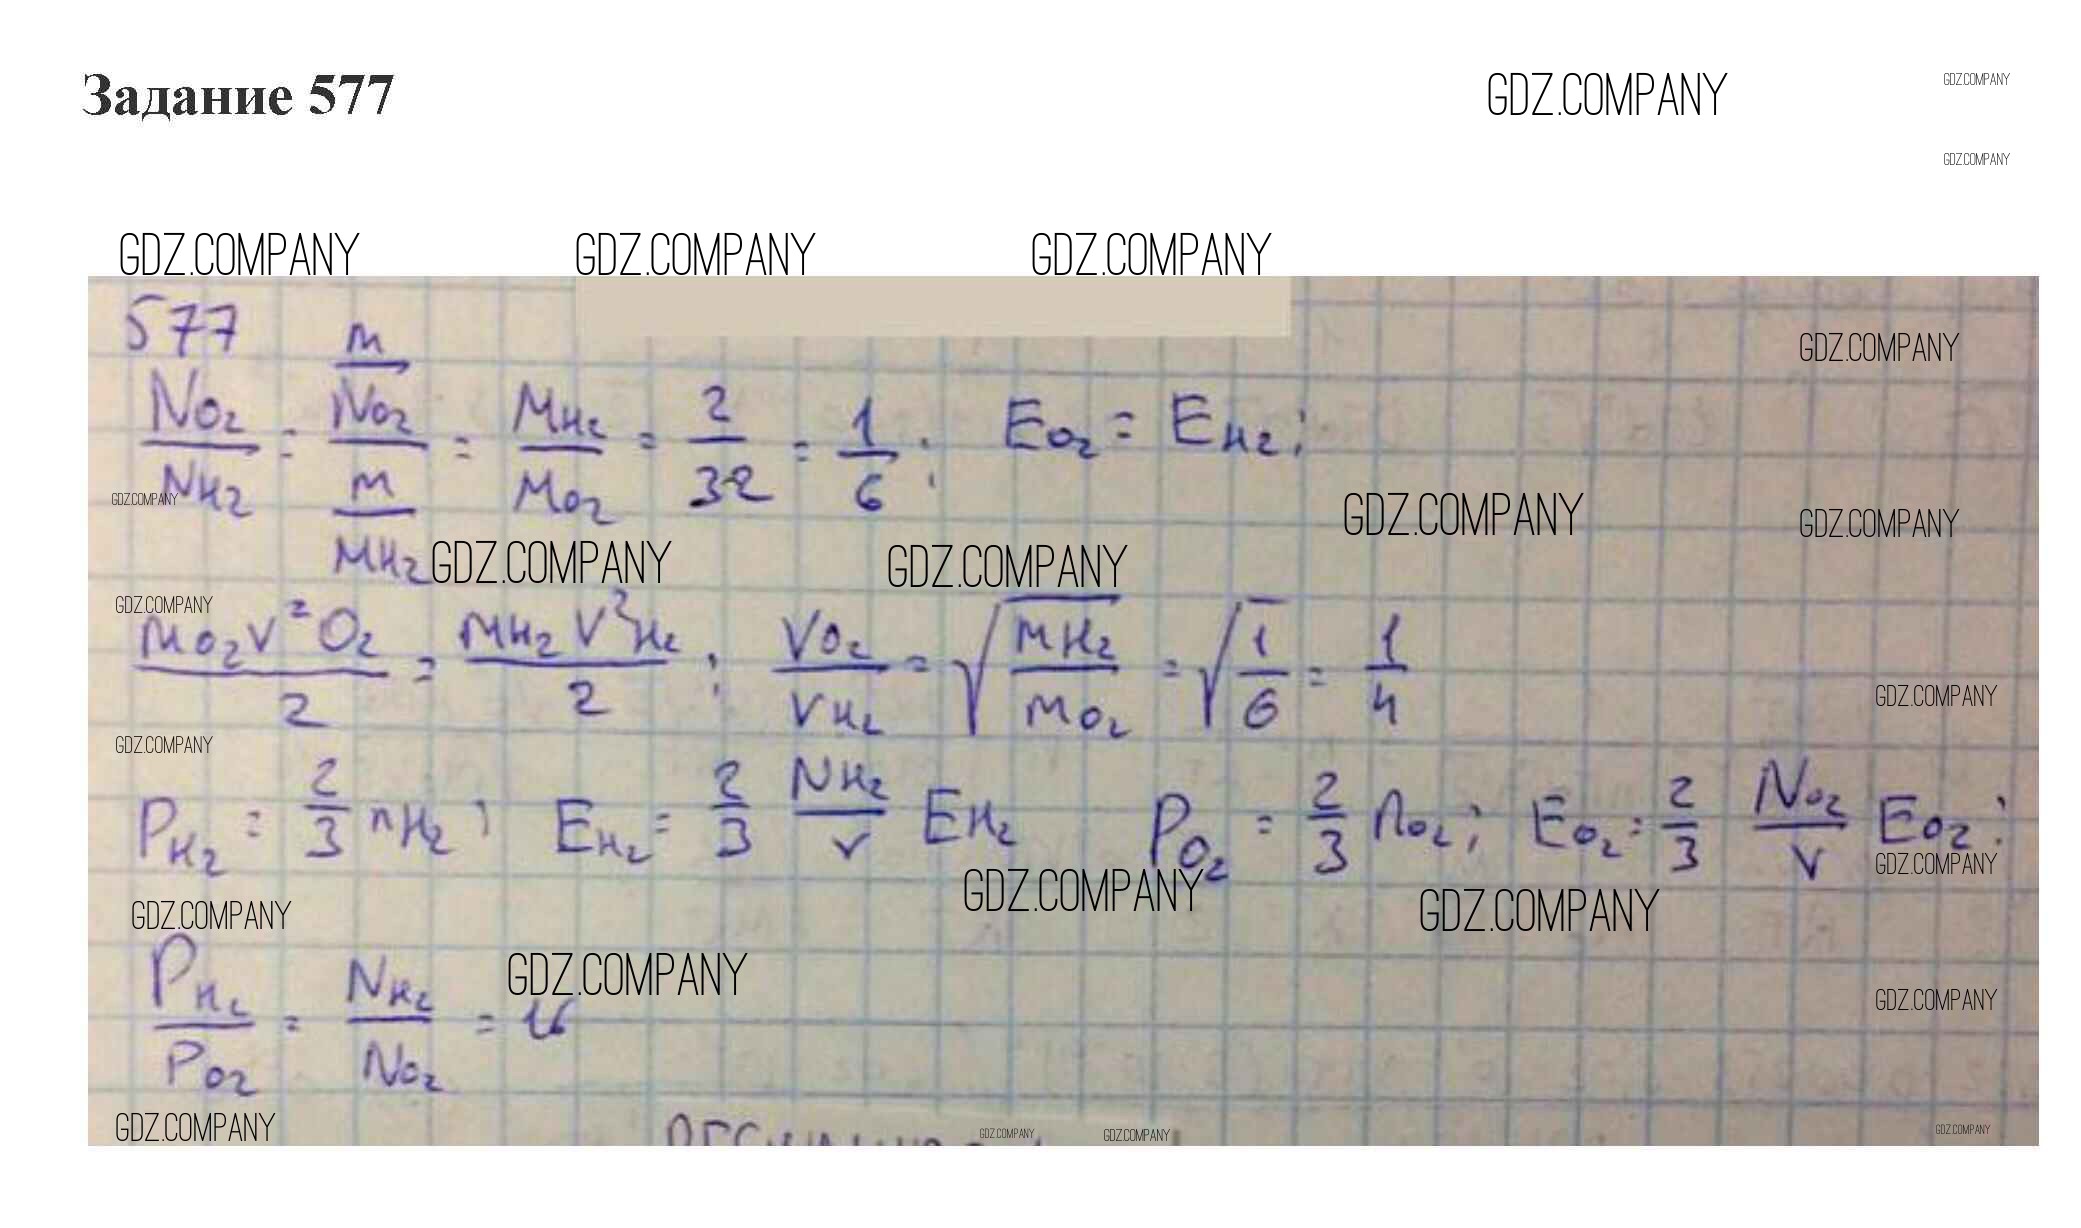 Задание 577
GDZ.COMPANY GDZ.COMPANY
GDZ.COMPANY
GDZ.COMPANY GDZ.COMPANY GDZ.COMPANY
577
GDZ.COMPANY
N_O₂/N_H₂ = (m/N_O₂)/(m/M_H₂) = M_H₂/M_O₂ = 2/32 = 1/6 ; E_O₂ = E_H₂;
GDZ.COMPANY GDZ.COMPANY GDZ.COMPANY
GDZ.COMPANY GDZ.COMPANY
GDZ.COMPANY
m_O₂ v² O₂/2 = m_H₂ v² H₂/2 ; v_O₂/v_H₂ = √(m_H₂/m_O₂) = √(1/6) = 1/4
GDZ.COMPANY
GDZ.COMPANY
P_H₂ = 2/3 n_H₂; E_H₂ = 2/3 N_H₂/v E_H₂ P_O₂ = 2/3 n_O₂; E_O₂ = 2/3 N_O₂/v E_O₂;
GDZ.COMPANY
GDZ.COMPANY GDZ.COMPANY GDZ.COMPANY
GDZ.COMPANY
P_H₂/P_O₂ = N_H₂/N_O₂ = 16
GDZ.COMPANY
GDZ.COMPANY GDZ.COMPANY GDZ.COMPANY GDZ.COMPANY